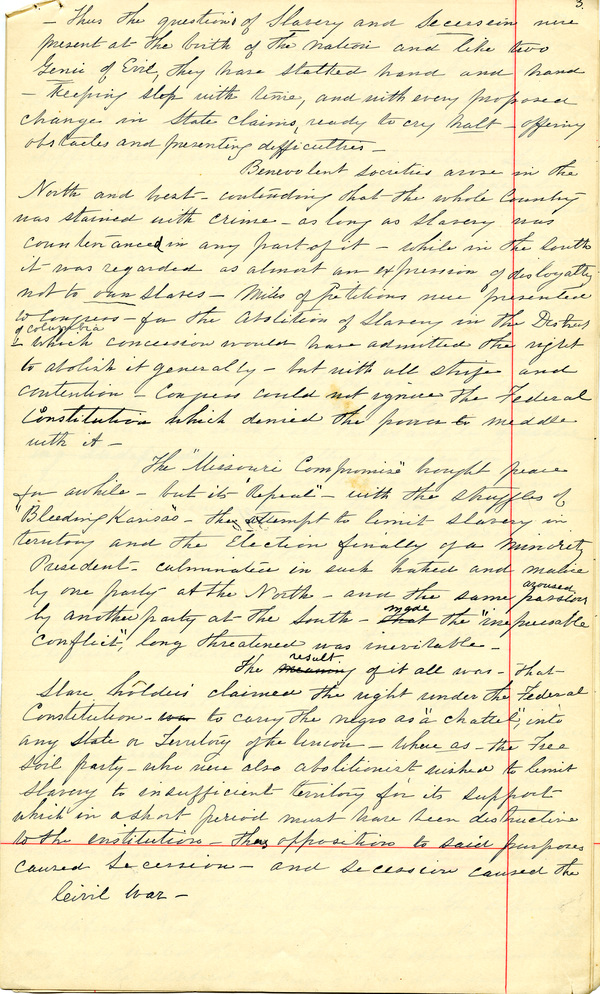 3.
- Thus the questions of Slavery and Secession were
present at the birth of the nation and like two
Genii of Evil, they have stalked hand and hand
- Keeping step with time, and with every proposed
change in State claims, ready to cry halt - offering
obstacles and presenting difficulties -
Benevolent societies arose in the
North and west - contending that the whole Country
was stained with crime - as long as slavery was
countenanced in any part of it - while in the South
it was regarded as almost an expression of disloyalty
not to own slaves - Miles of Petitions were presented
to Congress - for the Abolition of Slavery in the District
of Columbia
- which concession would have admitted the right
to abolish it generally - but with all strife and
contention - Congress could not ignore the Federal
Constitution which denied the power to meddle
with it -
The "Missouri Compromise" bought peace
for awhile - but its "Repeal" - with the struggles of
"Bleeding Kansas" - the attempt to limit slavery in
territory and the Election finally of a Minority
President - culminated in such hatred and malice
aroused
by one party at the North - and the same passion
made
by another party at the South - that the "irrepressible
conflict", long threatened was inevitable -
result
The meaning of it all was - that
Slave holders claimed the right under the Federal
Constitution - was to carry the negro as "a chattel", into
any State or Territory of the Union - where as - the Free
Soil party - who were also abolitionist wished to limit
Slavery to insufficient territory for its support
which in a short period must have been destructive
to the institution - opposition to said purposes
caused Secession - and Secession caused the
Civil War -